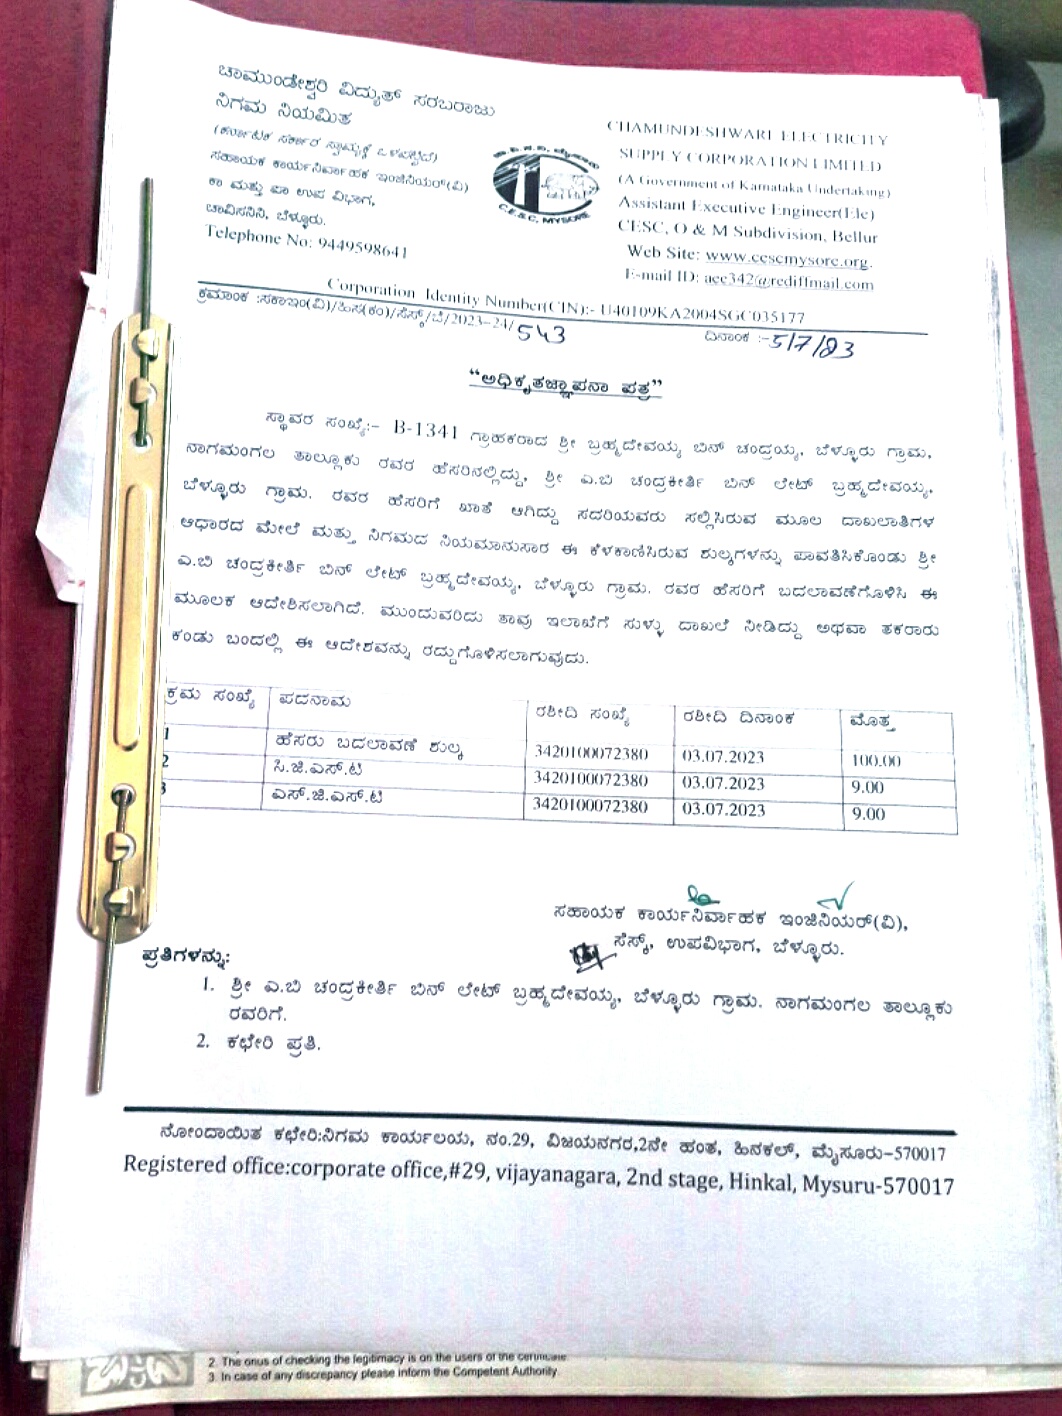 ಚಾಮುಂಡೇಶ್ವರಿ ವಿದ್ಯುತ್ ಸರಬರಾಜು
ನಿಗಮ ನಿಯಮಿತ
(ಕರ್ನಾಟಕ ಸರ್ಕಾರ ಸ್ವಾಮ್ಯಕ್ಕೆ ಒಳಪಟ್ಟಿದೆ)
ಸಹಾಯಕ ಕಾರ್ಯನಿರ್ವಾಹಕ ಇಂಜಿನಿಯರ್(ವಿ)
ಕಾ ಮತ್ತು ಪಾ ಉಪ ವಿಭಾಗ,
ಚಾವಿಸನಿನಿ, ಬೆಳ್ಳೂರು.
Telephone No: 9449598641
C.E.S.C, MYSORE
CHAMUNDESHWARI ELECTRICITY
SUPPLY CORPORATION LIMITED
(A Government of Karnataka Undertaking)
Assistant Executive Engineer(Ele)
CESC, O & M Subdivision, Bellur
Web Site: www.cescmysore.org.
E-mail ID: aee342@rediffmail.com
Corporation Identity Number(CIN):- U40109KA2004SGC035177
ಕ್ರಮಾಂಕ :ಸಕಾಇಂ(ವಿ)/ಹಿಸ(ಕಂ)/ಸೆಸ್ಕ್/ಬೆ/2023-24/543 ದಿನಾಂಕ :-5/7/23
“ಅಧಿಕೃತಜ್ಞಾಪನಾ ಪತ್ರ”
ಸ್ಥಾವರ ಸಂಖ್ಯೆ:- B-1341 ಗ್ರಾಹಕರಾದ ಶ್ರೀ ಬ್ರಹ್ಮದೇವಯ್ಯ ಬಿನ್ ಚಂದ್ರಯ್ಯ, ಬೆಳ್ಳೂರು ಗ್ರಾಮ,
ನಾಗಮಂಗಲ ತಾಲ್ಲೂಕು ರವರ ಹೆಸರಿನಲ್ಲಿದ್ದು, ಶ್ರೀ ಎ.ಬಿ ಚಂದ್ರಕೀರ್ತಿ ಬಿನ್ ಲೇಟ್ ಬ್ರಹ್ಮದೇವಯ್ಯ,
ಬೆಳ್ಳೂರು ಗ್ರಾಮ. ರವರ ಹೆಸರಿಗೆ ಖಾತೆ ಆಗಿದ್ದು ಸದರಿಯವರು ಸಲ್ಲಿಸಿರುವ ಮೂಲ ದಾಖಲಾತಿಗಳ
ಆಧಾರದ ಮೇಲೆ ಮತ್ತು ನಿಗಮದ ನಿಯಮಾನುಸಾರ ಈ ಕೆಳಕಾಣಿಸಿರುವ ಶುಲ್ಕಗಳನ್ನು ಪಾವತಿಸಿಕೊಂಡು ಶ್ರೀ
ಎ.ಬಿ ಚಂದ್ರಕೀರ್ತಿ ಬಿನ್ ಲೇಟ್ ಬ್ರಹ್ಮದೇವಯ್ಯ, ಬೆಳ್ಳೂರು ಗ್ರಾಮ. ರವರ ಹೆಸರಿಗೆ ಬದಲಾವಣೆಗೊಳಿಸಿ ಈ
ಮೂಲಕ ಆದೇಶಿಸಲಾಗಿದೆ. ಮುಂದುವರಿದು ತಾವು ಇಲಾಖೆಗೆ ಸುಳ್ಳು ದಾಖಲೆ ನೀಡಿದ್ದು ಅಥವಾ ತಕರಾರು
ಕಂಡು ಬಂದಲ್ಲಿ ಈ ಆದೇಶವನ್ನು ರದ್ದುಗೊಳಿಸಲಾಗುವುದು.
ಕ್ರಮ ಸಂಖ್ಯೆ ಪದನಾಮ ರಶೀದಿ ಸಂಖ್ಯೆ ರಶೀದಿ ದಿನಾಂಕ ಮೊತ್ತ
1 ಹೆಸರು ಬದಲಾವಣೆ ಶುಲ್ಕ 3420100072380 03.07.2023 100.00
2 ಸಿ.ಜಿ.ಎಸ್.ಟಿ 3420100072380 03.07.2023 9.00
3 ಎಸ್.ಜಿ.ಎಸ್.ಟಿ 3420100072380 03.07.2023 9.00
ಸಹಾಯಕ ಕಾರ್ಯನಿರ್ವಾಹಕ ಇಂಜಿನಿಯರ್(ವಿ),
ಸೆಸ್ಕ್, ಉಪವಿಭಾಗ, ಬೆಳ್ಳೂರು.
ಪ್ರತಿಗಳನ್ನು:
1. ಶ್ರೀ ಎ.ಬಿ ಚಂದ್ರಕೀರ್ತಿ ಬಿನ್ ಲೇಟ್ ಬ್ರಹ್ಮದೇವಯ್ಯ, ಬೆಳ್ಳೂರು ಗ್ರಾಮ. ನಾಗಮಂಗಲ ತಾಲ್ಲೂಕು
ರವರಿಗೆ.
2. ಕಛೇರಿ ಪ್ರತಿ.
ನೋಂದಾಯಿತ ಕಛೇರಿ:ನಿಗಮ ಕಾರ್ಯಲಯ, ನಂ.29, ವಿಜಯನಗರ,2ನೇ ಹಂತ, ಹಿನಕಲ್, ಮೈಸೂರು-570017
Registered office:corporate office,#29, vijayanagara, 2nd stage, Hinkal, Mysuru-570017
2. The onus of checking the legitimacy is on the users of the certificate
3. In case of any discrepancy please inform the Competent Authority.